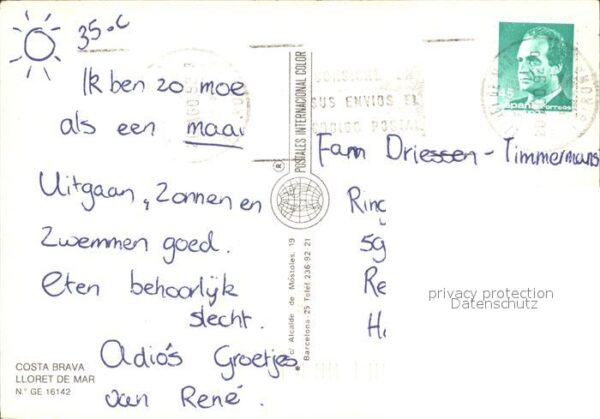 35°C
Ik ben zo moe
als een maai
Uitgaan, Zonnen en
Zwemmen goed.
Eten behoorlijk
slecht.
Adiós Groetjes
van René.
COSTA BRAVA
LLORET DE MAR
N.º GE 16142
POSTALES INTERNACIONAL COLOR
®
c/ Alcalde de Móstoles, 19
Barcelona-25 Telef. 236 92 21
CONSIGNE EN
SUS ENVIOS EL
CODIGO POSTAL
45
España correos
Fam Driessen - Timmermans
Ring
59
Re
H
privacy protection
Datenschutz